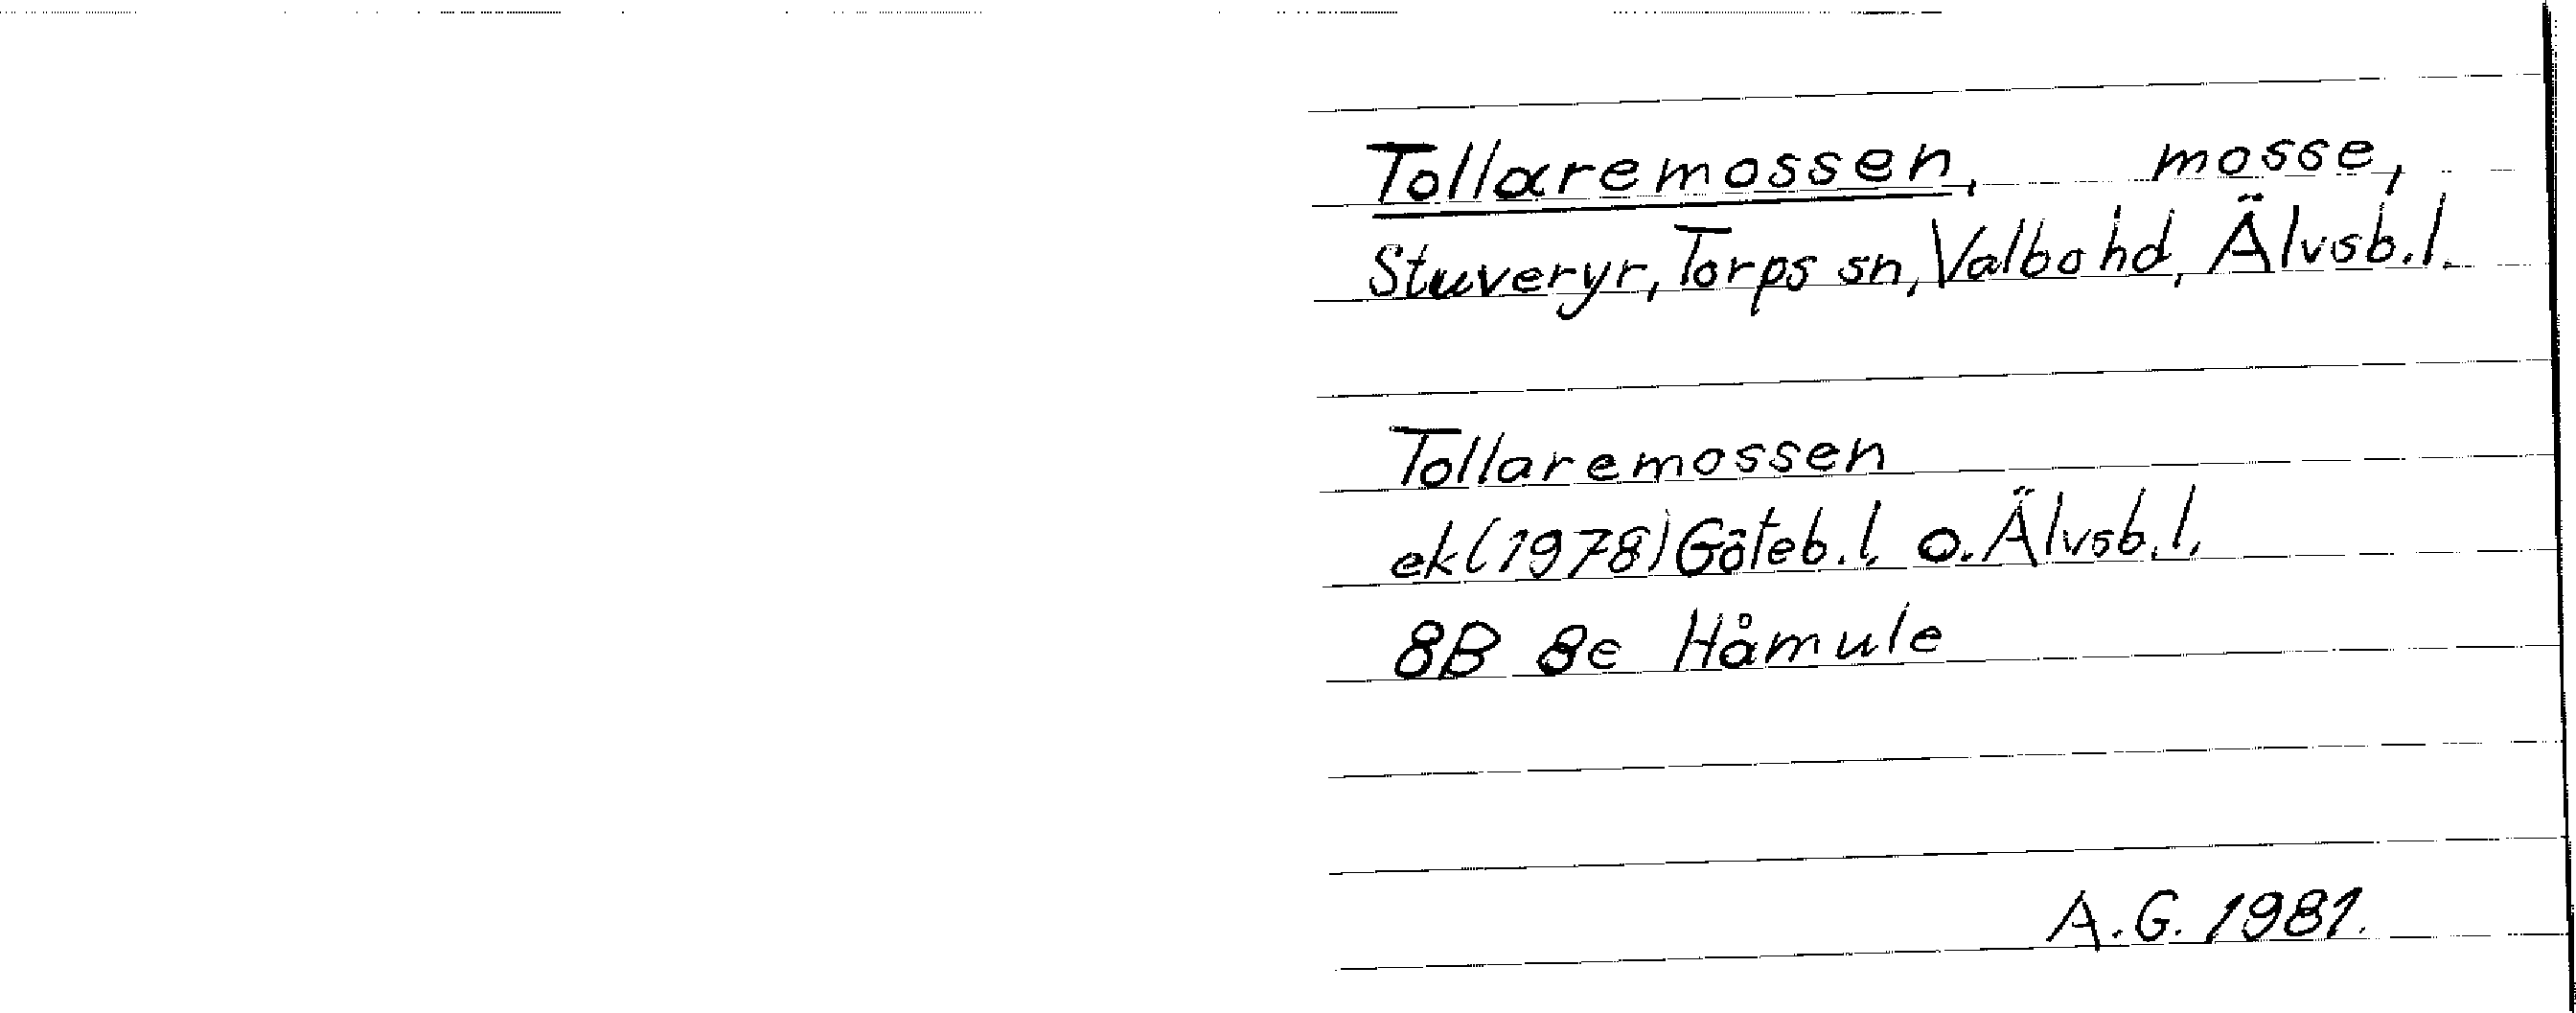 Tollaremossen, mosse,
Stuveryr, Torps sn, Valbo hd, Älvsb.l.
Tollaremossen
ek (1978) Göteb.l. o. Älvsb.l.
8B 8e Håmule
A.G. 1981.